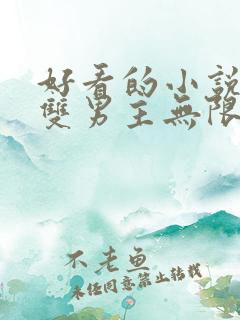 好看的小說
雙男主無限
不老魚
未經同意禁止轉載